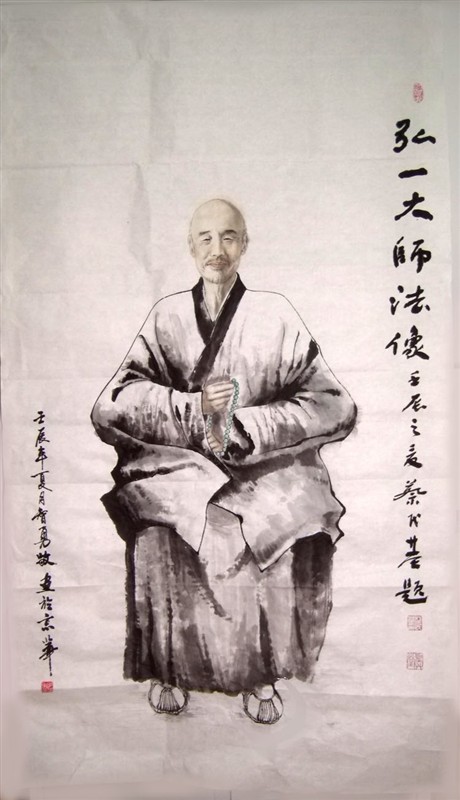 弘一大師法像 壬辰之夏 蔡 題
壬辰年夏月智勇敬畫於京華